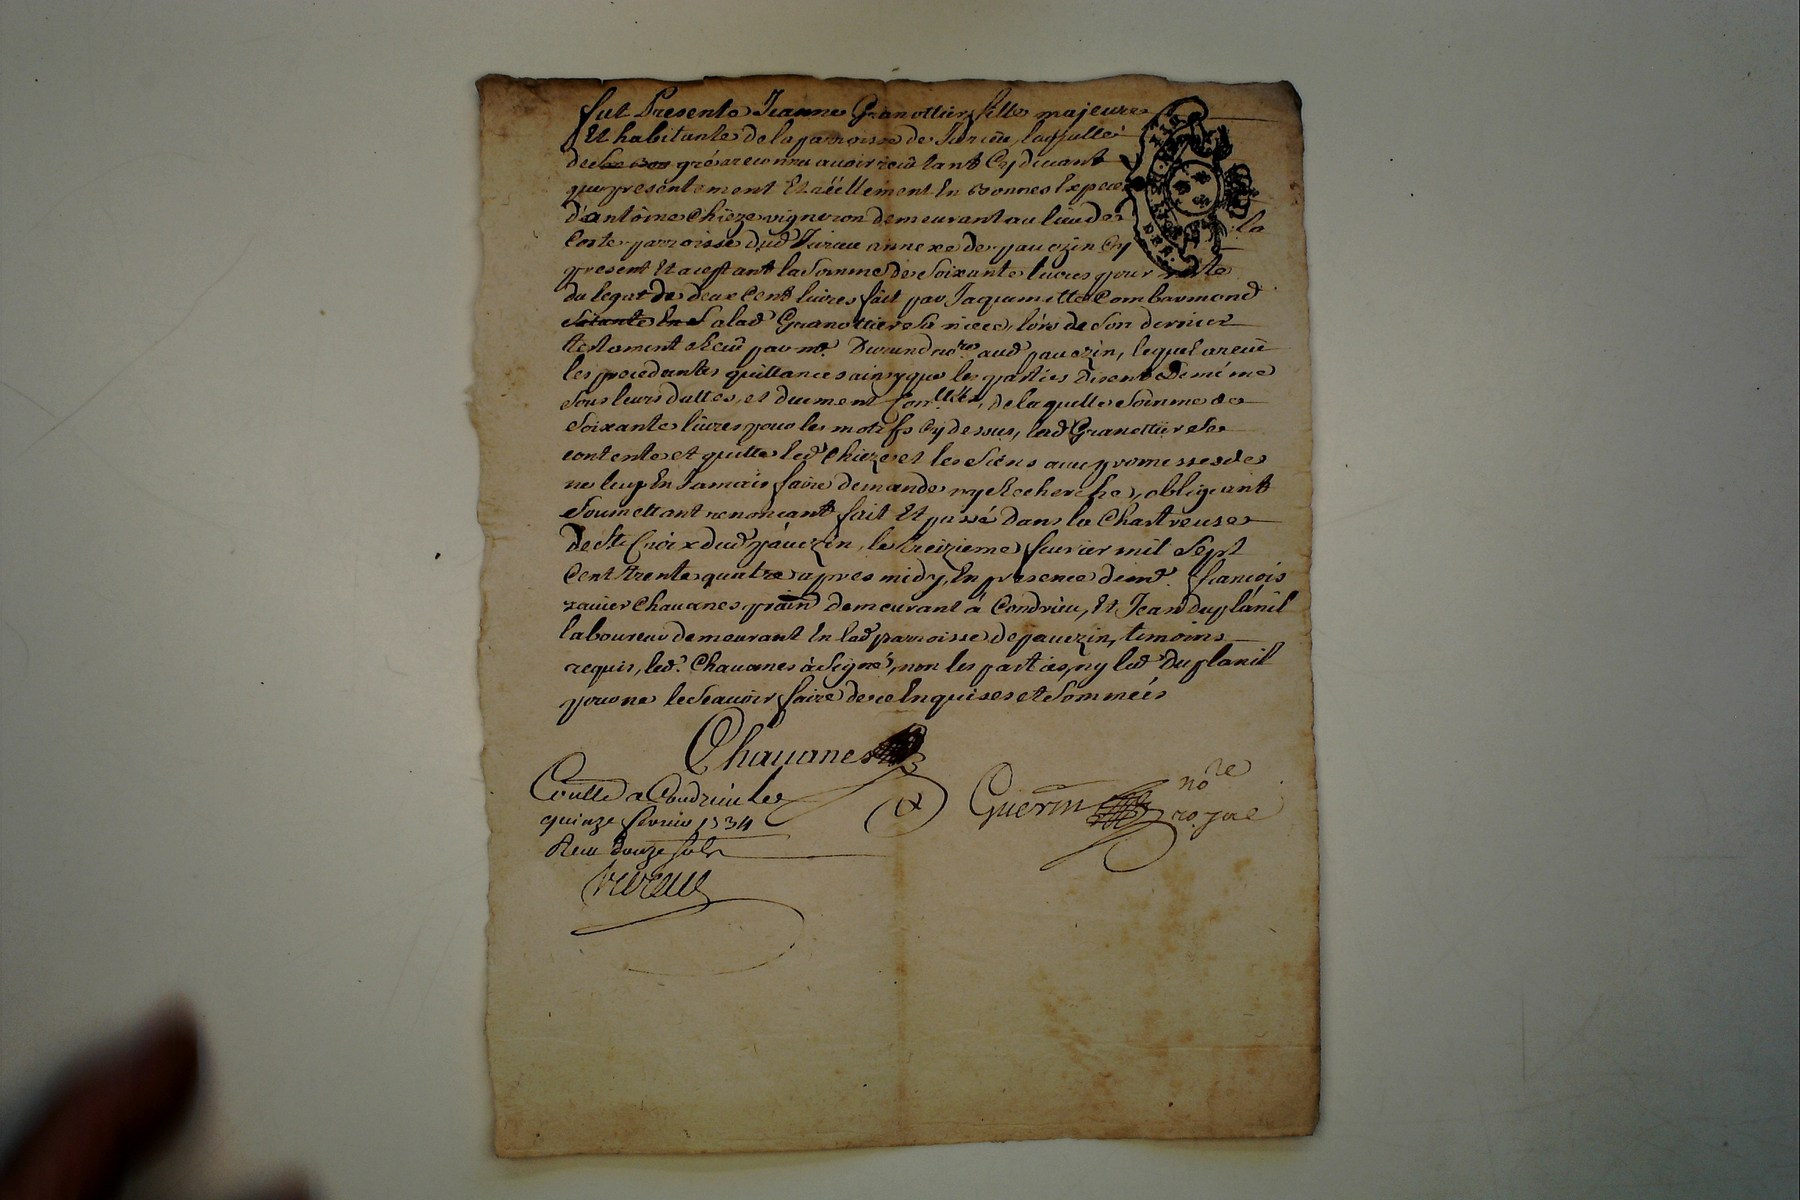 fut Presente Jeanne Granottier fille majeure
Et habitante de la parroisse de Jurieu, laquelle
de son gré a reconnu avoir receu tant Cy devant
que presentement Et réellement En bonnes Especes
d'antoine Chieze vigneron demeurant au lieu de la
Coste parroisse dud Jurieu annexe de pavezin Cy
present Et aceptant la Somme de Soixante livres pour reste
du legat de deux Cent livres fait par Jaquemette Combarmond
a lad Granottier Sa niece, lors de Son dernier
testament Receu par me. Durand nore. aud pavezin, lequel
les precedentes quittances ainsy que les parties disent de même
Sous leurs dattes, et duement Conllées, de laquelle Somme de
Soixante livres pour les motifs Cy dessus, lad Granottier Se
contente et quitte led Chieze et les Siens avec promesses de
ne leur En Jamais faire demande ny Recherche, obligeant
Soumettant renonceant fait Et passé Dans la Chartreuse
De Ste Croix dud pavezin, le treizieme fevrier mil Sept
Cent trente quatre apres midy, En presence de me. françois
xavier Chavanes demeurant à Condrieu, Et Jean Duplanil
laboureur demeurant En lad parroisse de pavezin, temoins
requis, led. Chavanes à Signé, non les parties, ny led Duplanil
pour ne le Scavoir faire de ce Enquises et Sommées
Chavanes
Conllé a Condrieu le
quinze fevrier 1734
Receu douze sols
Guerin nore
royal